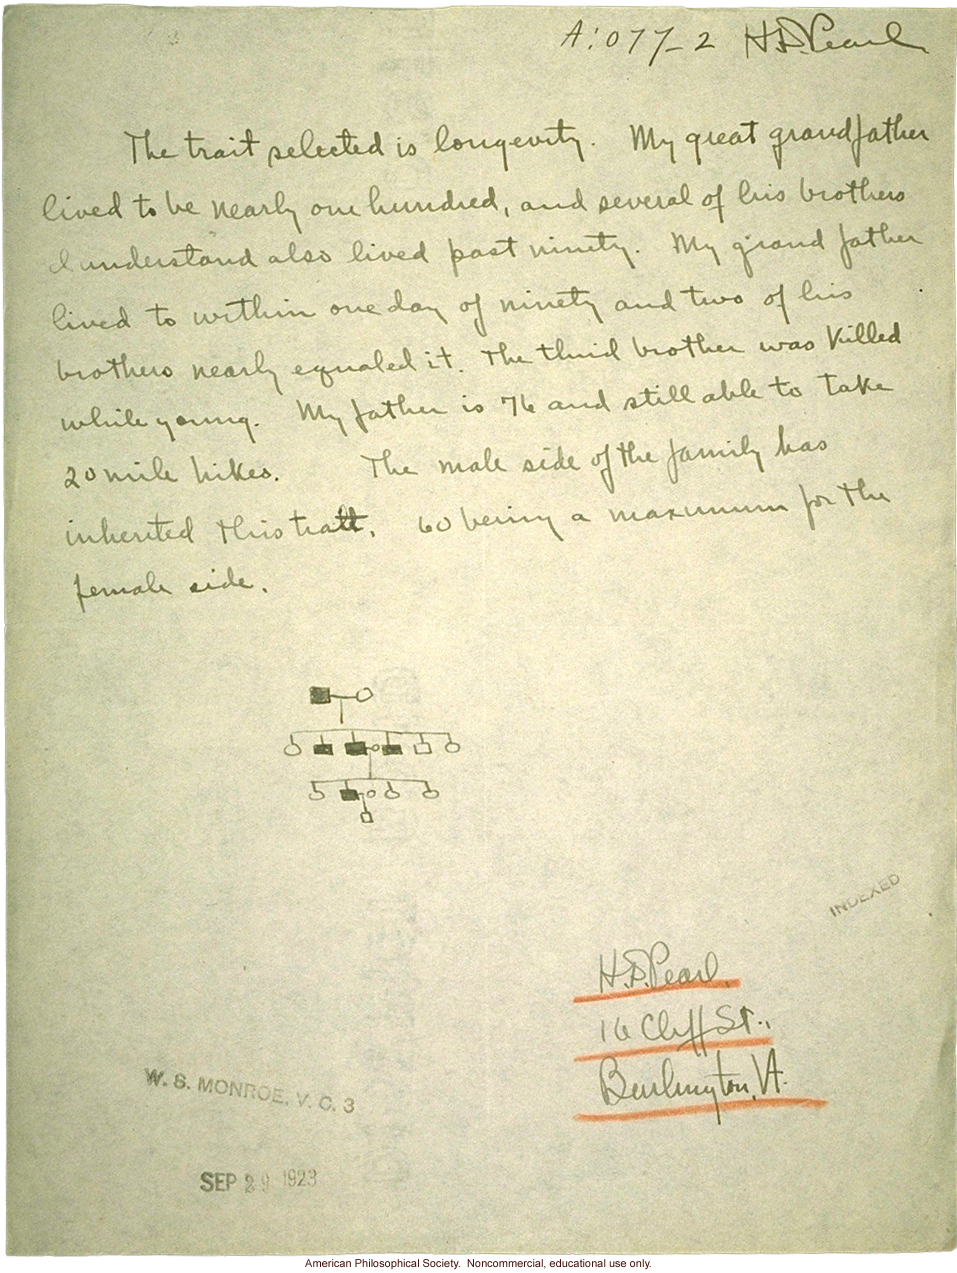 A:077-2 H.D. Pearl
The trait selected is longevity. My great grandfather
lived to be nearly one hundred, and several of his brothers
I understand also lived past ninety. My grand father
lived to within one day of ninety and two of his
brothers nearly equaled it. The third brother was killed
while young. My father is 76 and still able to take
20 mile hikes. The male side of the family has
inherited this trait. 60 being a maximum for the
female side.
INDEXED
H.D. Pearl.
16 Cliff St.,
Burlington, Vt.
W. S. MONROE, V. C. 3
SEP 29 1923
American Philosophical Society. Noncommercial, educational use only.